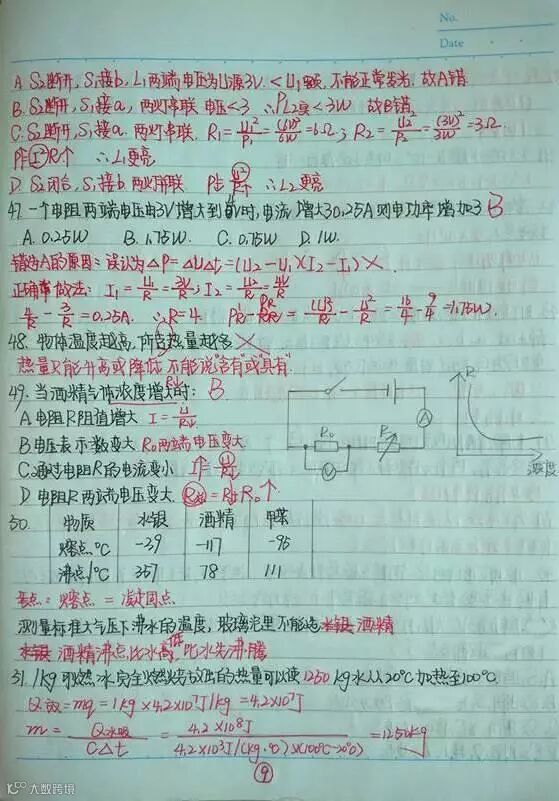 No.
Date
A. S₂断开, S₁接b, L₁两端电压为U源3V < U₁额, 不能正常发光 故A错
B. S₂断开, S₁接a, 两灯串联 电压<3 ∴PL₂实<3W 故B错
C. S₂断开, S₁接a, 两灯串联. R₁=U₁²/P₁=(6V)²/6W=6Ω; R₂=U₂²/P₂=(3V)²/3W=3Ω.
P↑=I²R↑ ∴L₁更亮
D. S₂闭合, S₁接b 两灯并联 P↑=U²/R↓ ∴L₂更亮
47. 一个电阻两端电压由3V增大到4V时, 电流增大了0.25A 则电功率增加了 B
A. 0.25W B. 1.75W. C. 0.75W D. 1W.
错选A的原因: 误认为△P=△U△I=(U₂-U₁)(I₂-I₁) ×.
正确做法: I₁=U₁/R=3V/R; I₂=U₂/R=4V/R
4/R-3/R=0.25A. ∴R=4. =16/4-9/4=1.75W.
48. 物体温度越高, 所含热量越多 ×
热量只能升高或降低 不能说"含有"或"具有"
49. 当酒精气体浓度增大时: B
R↓
A. 电阻R阻值增大 I=U/R↓
B. 电压表示数变大 R₀两端电压变大
C. 通过电阻R的电流变小 I↑=U/R↓
D. 电阻R两端电压变大.
R₀
R
A
V
R
浓度
50. 物质 水银 酒精 甲苯
熔点/°C -39 -117 -95
沸点/°C 357 78 111
考点: 熔点 = 凝固点
测量标准大气压下沸水的温度, 玻璃泡里不能选水银 酒精
水银 酒精沸点比水低, 比水先沸腾
51. 1kg可燃冰完全燃烧放出的热量可以使1250kg水从20°C加热至100°C.
Q放=mq=1kg×4.2×10⁷J/kg=4.2×10⁷J
m=Q水吸/C△t=4.2×10⁸J/4.2×10³J/(kg·°C)×(100°C-20°C)=1250kg
9
大数跨境